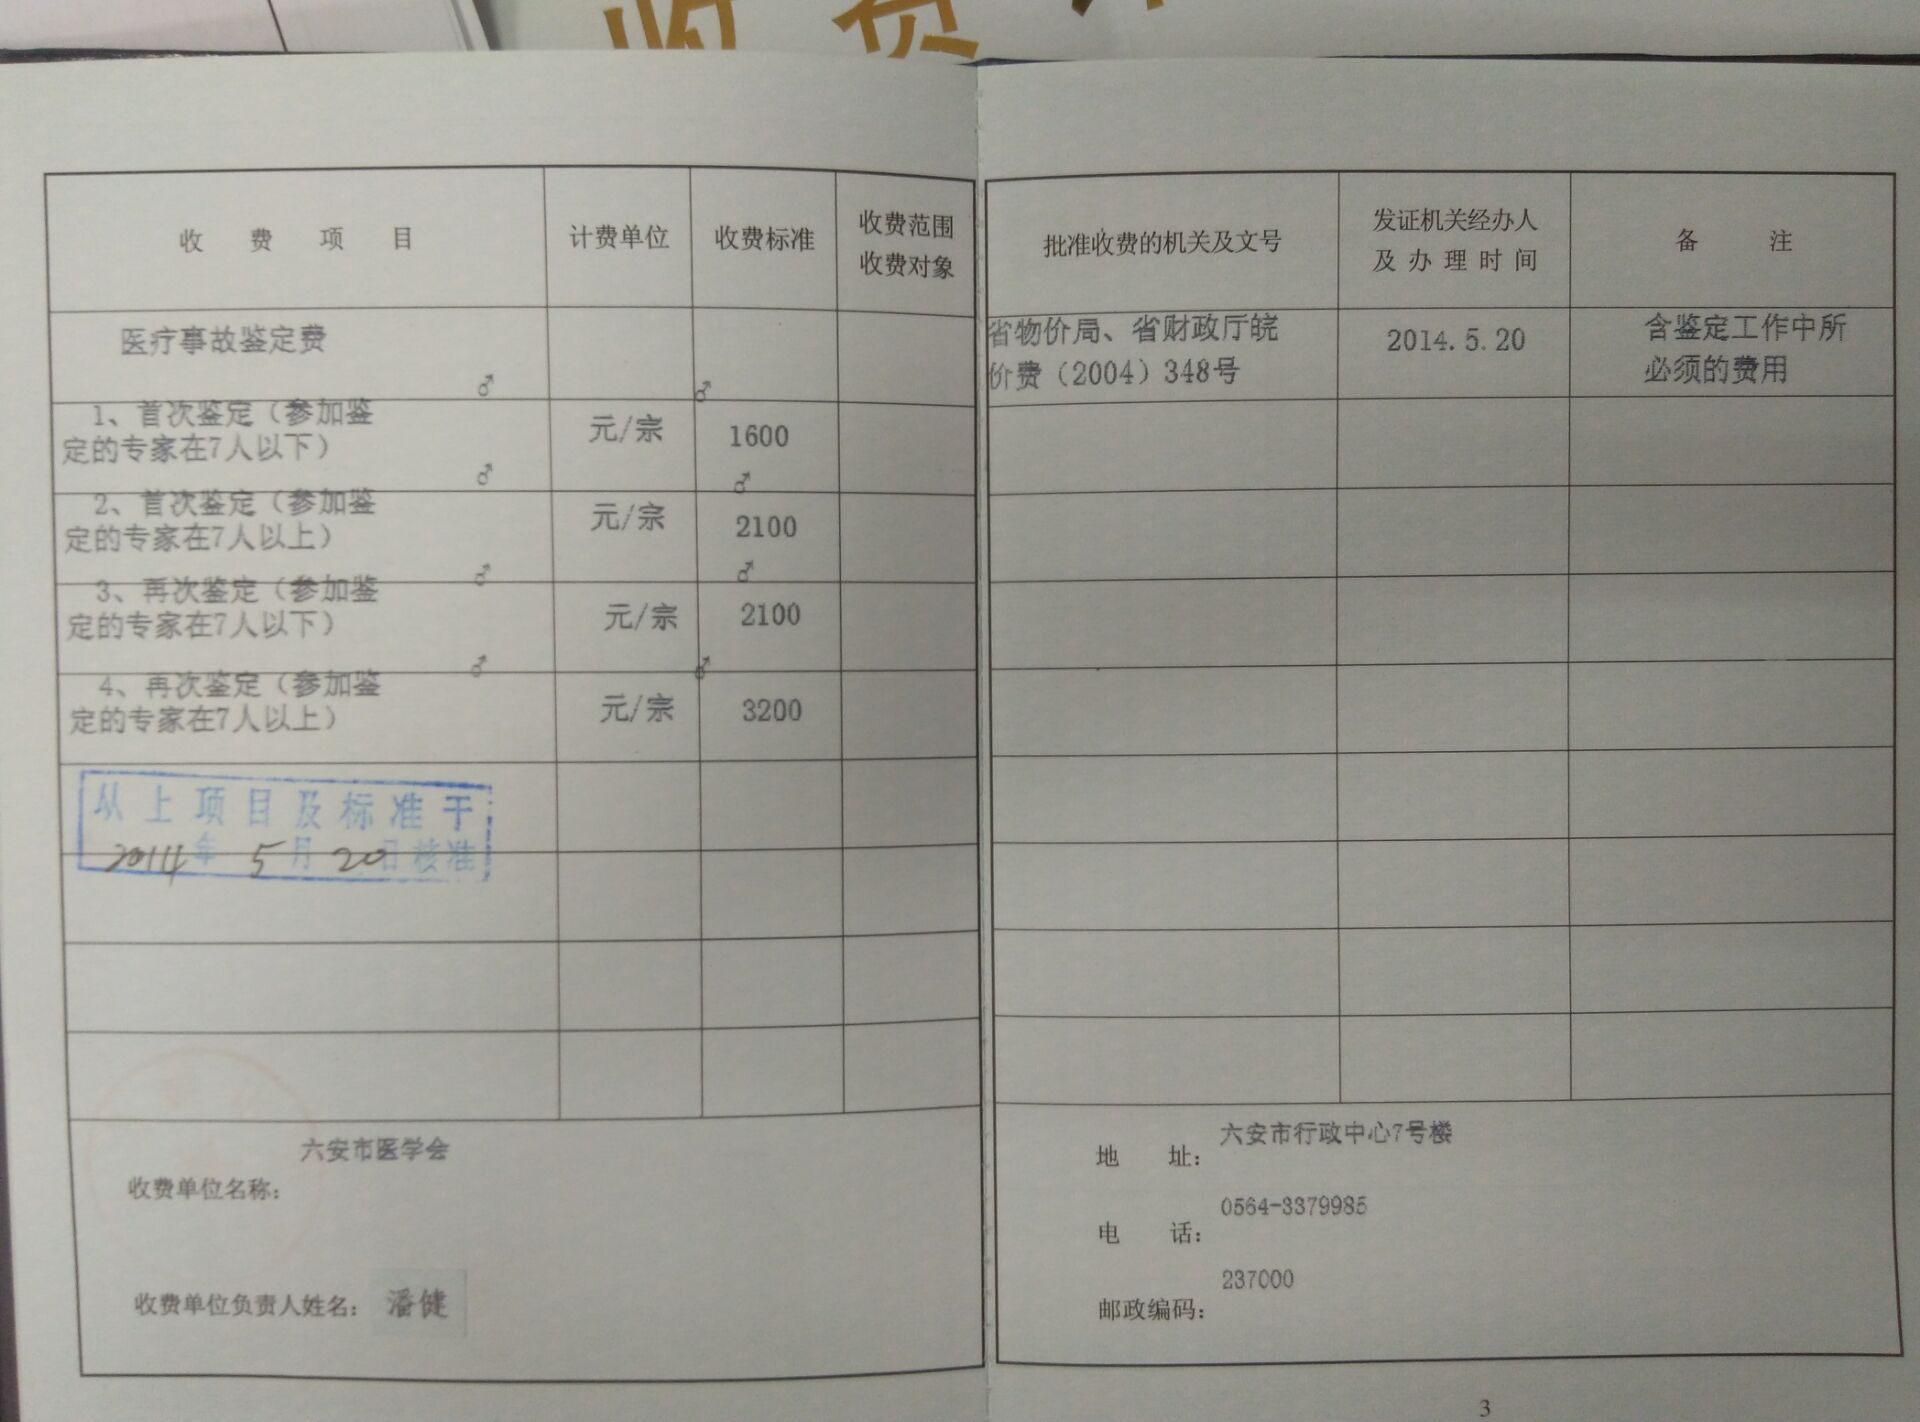 收费
收费项目
计费单位
收费标准
收费范围
收费对象
批准收费的机关及文号
发证机关经办人
及办理时间
备注
医疗事故鉴定费
省物价局、省财政厅皖
价费（2004）348号
2014.5.20
含鉴定工作中所
必须的费用
♂ ♂
1、首次鉴定（参加鉴
定的专家在7人以下）
元/宗
1600
♂ ♂
2、首次鉴定（参加鉴
定的专家在7人以上）
元/宗
2100
♂ ♂
3、再次鉴定（参加鉴
定的专家在7人以下）
元/宗
2100
♂ ♂
4、再次鉴定（参加鉴
定的专家在7人以上）
元/宗
3200
从上项目及标准于
2014年5月20日核准
六安市医学会
收费单位名称：
收费单位负责人姓名：潘健
六安市行政中心7号楼
地址：
0564-3379985
电话：
237000
邮政编码：
3